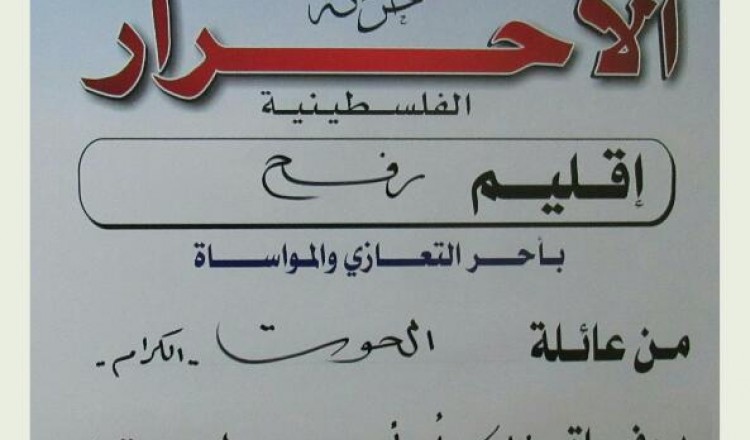 حركة
الأحرار
الفلسطينية
إقليم رفح
بأحر التعازي والمواساة
من عائلة الحوت - الكرام -